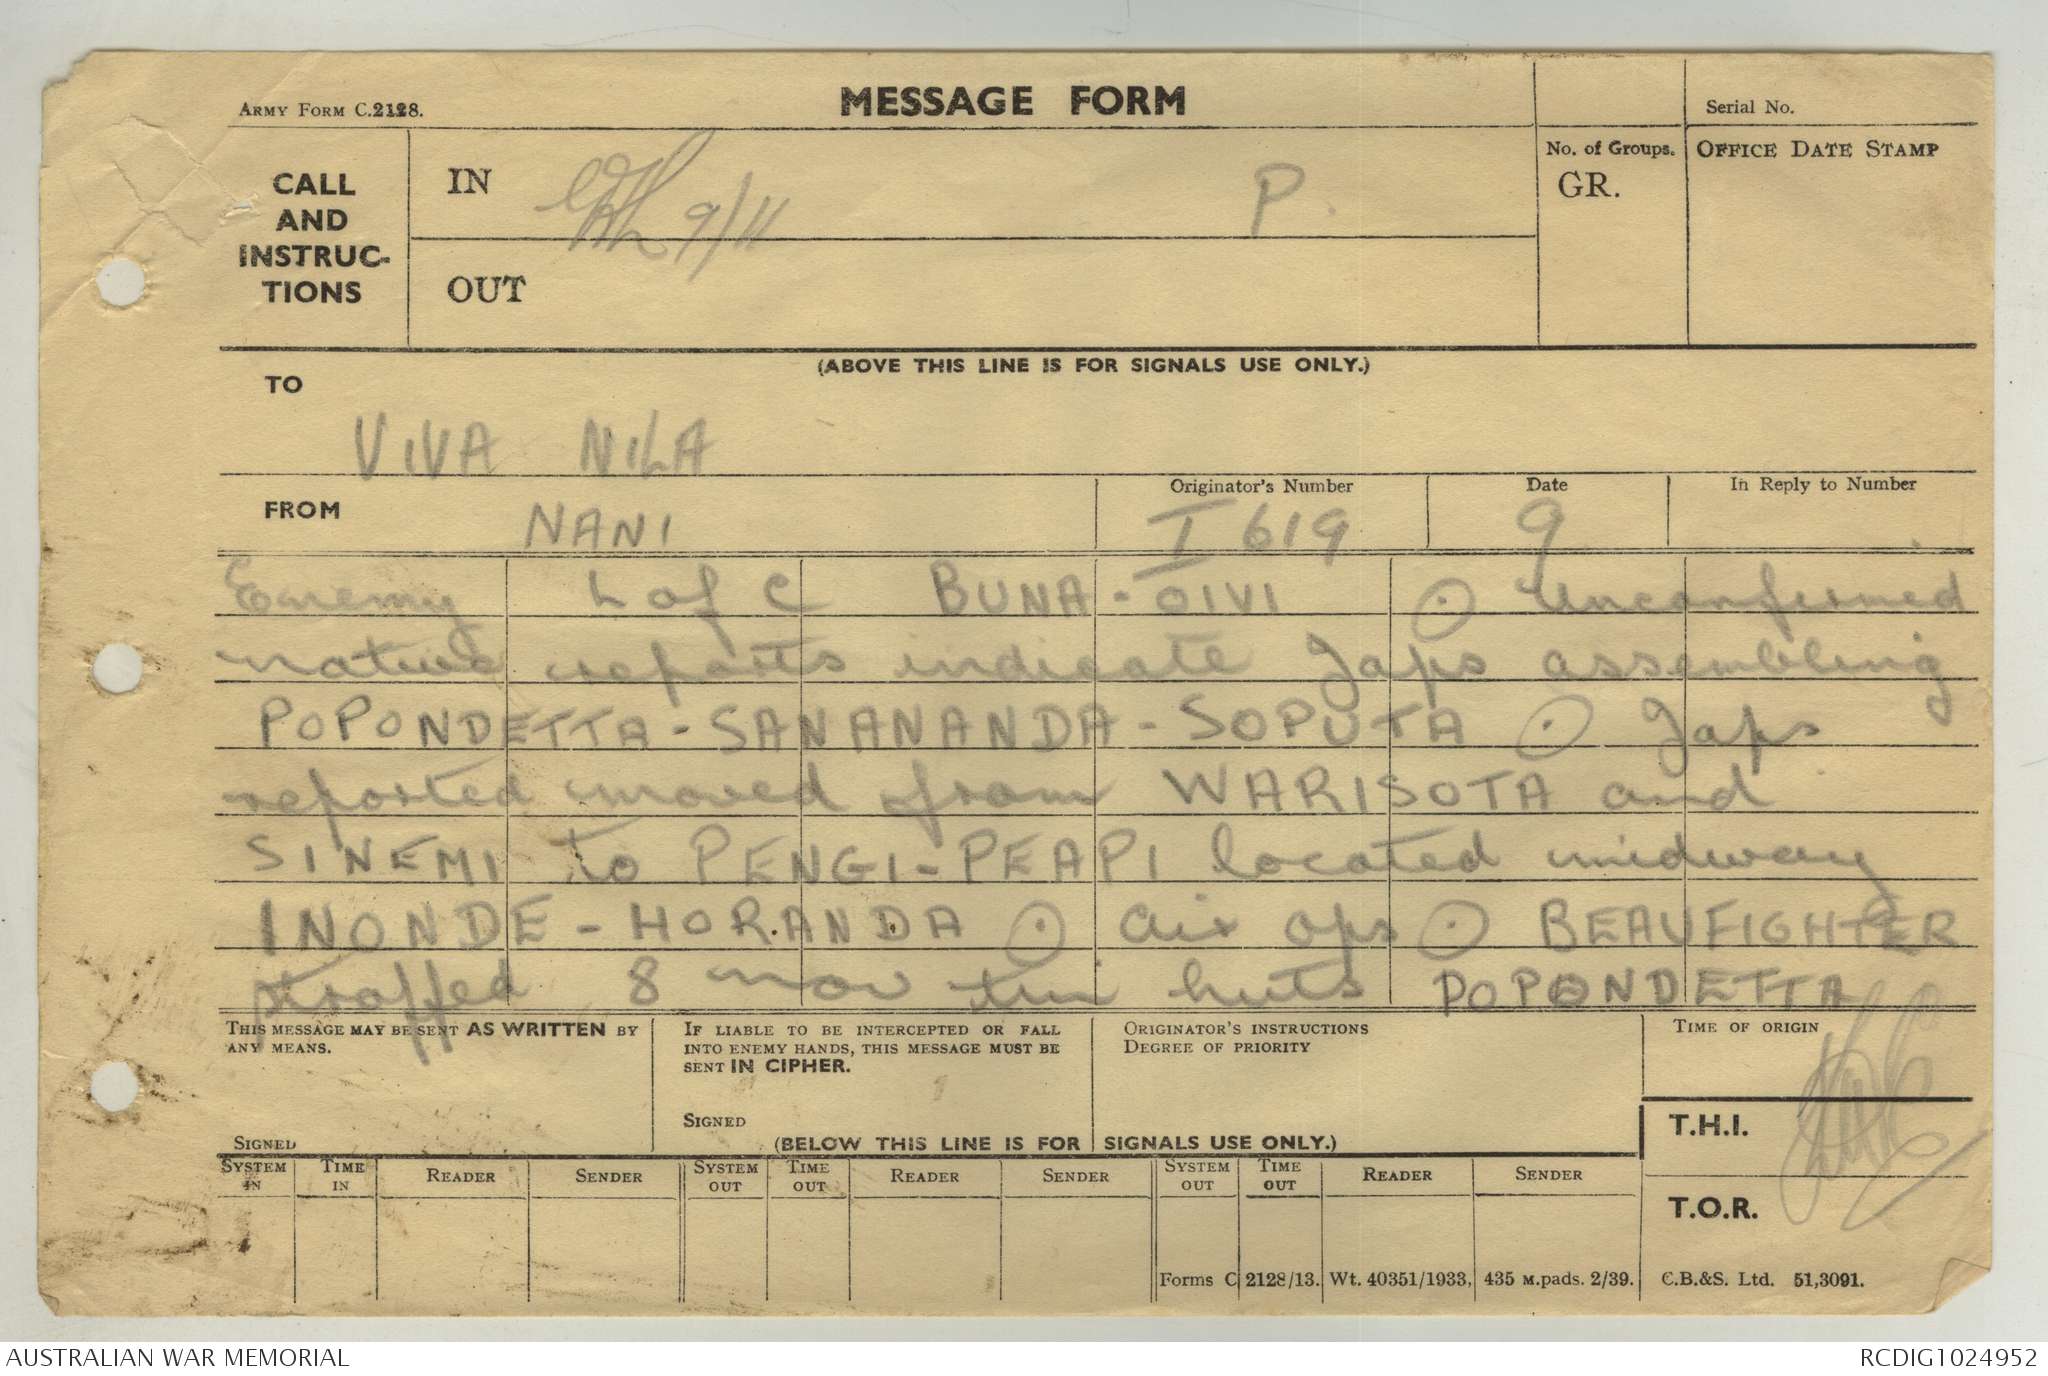 ARMY FORM C.2128.
MESSAGE FORM
Serial No.
CALL AND INSTRUC-TIONS
IN
9/11
P.
No. of Groups.
GR.
OFFICE DATE STAMP
OUT
(ABOVE THIS LINE IS FOR SIGNALS USE ONLY.)
TO
VIVA NILA
FROM
NANI
Originator's Number
I 619
Date
9
In Reply to Number
Enemy L of C BUNA - OIVI ⊙ Unconfirmed
native reports indicate Japs assembling
POPONDETTA - SANANANDA - SOPUTA ⊙ Japs
reported moved from WARISOTA and
SINEMI to PENGI - PEAPI located midway
INONDE - HORANDA ⊙ air ops ⊙ BEAUFIGHTER
straffed 8 nov tin huts POPONDETTA
THIS MESSAGE MAY BE SENT AS WRITTEN BY
ANY MEANS.
SIGNED
IF LIABLE TO BE INTERCEPTED OR FALL
INTO ENEMY HANDS, THIS MESSAGE MUST BE
SENT IN CIPHER.
SIGNED
ORIGINATOR'S INSTRUCTIONS
DEGREE OF PRIORITY
TIME OF ORIGIN
T.H.I.
(BELOW THIS LINE IS FOR SIGNALS USE ONLY.)
SYSTEM IN
TIME IN
READER
SENDER
SYSTEM OUT
TIME OUT
READER
SENDER
SYSTEM OUT
TIME OUT
READER
SENDER
T.O.R.
Forms C 2128/13. Wt. 40351/1933. 435 M.pads. 2/39. C.B.&S. Ltd. 51,3091.
AUSTRALIAN WAR MEMORIAL
RCDIG1024952